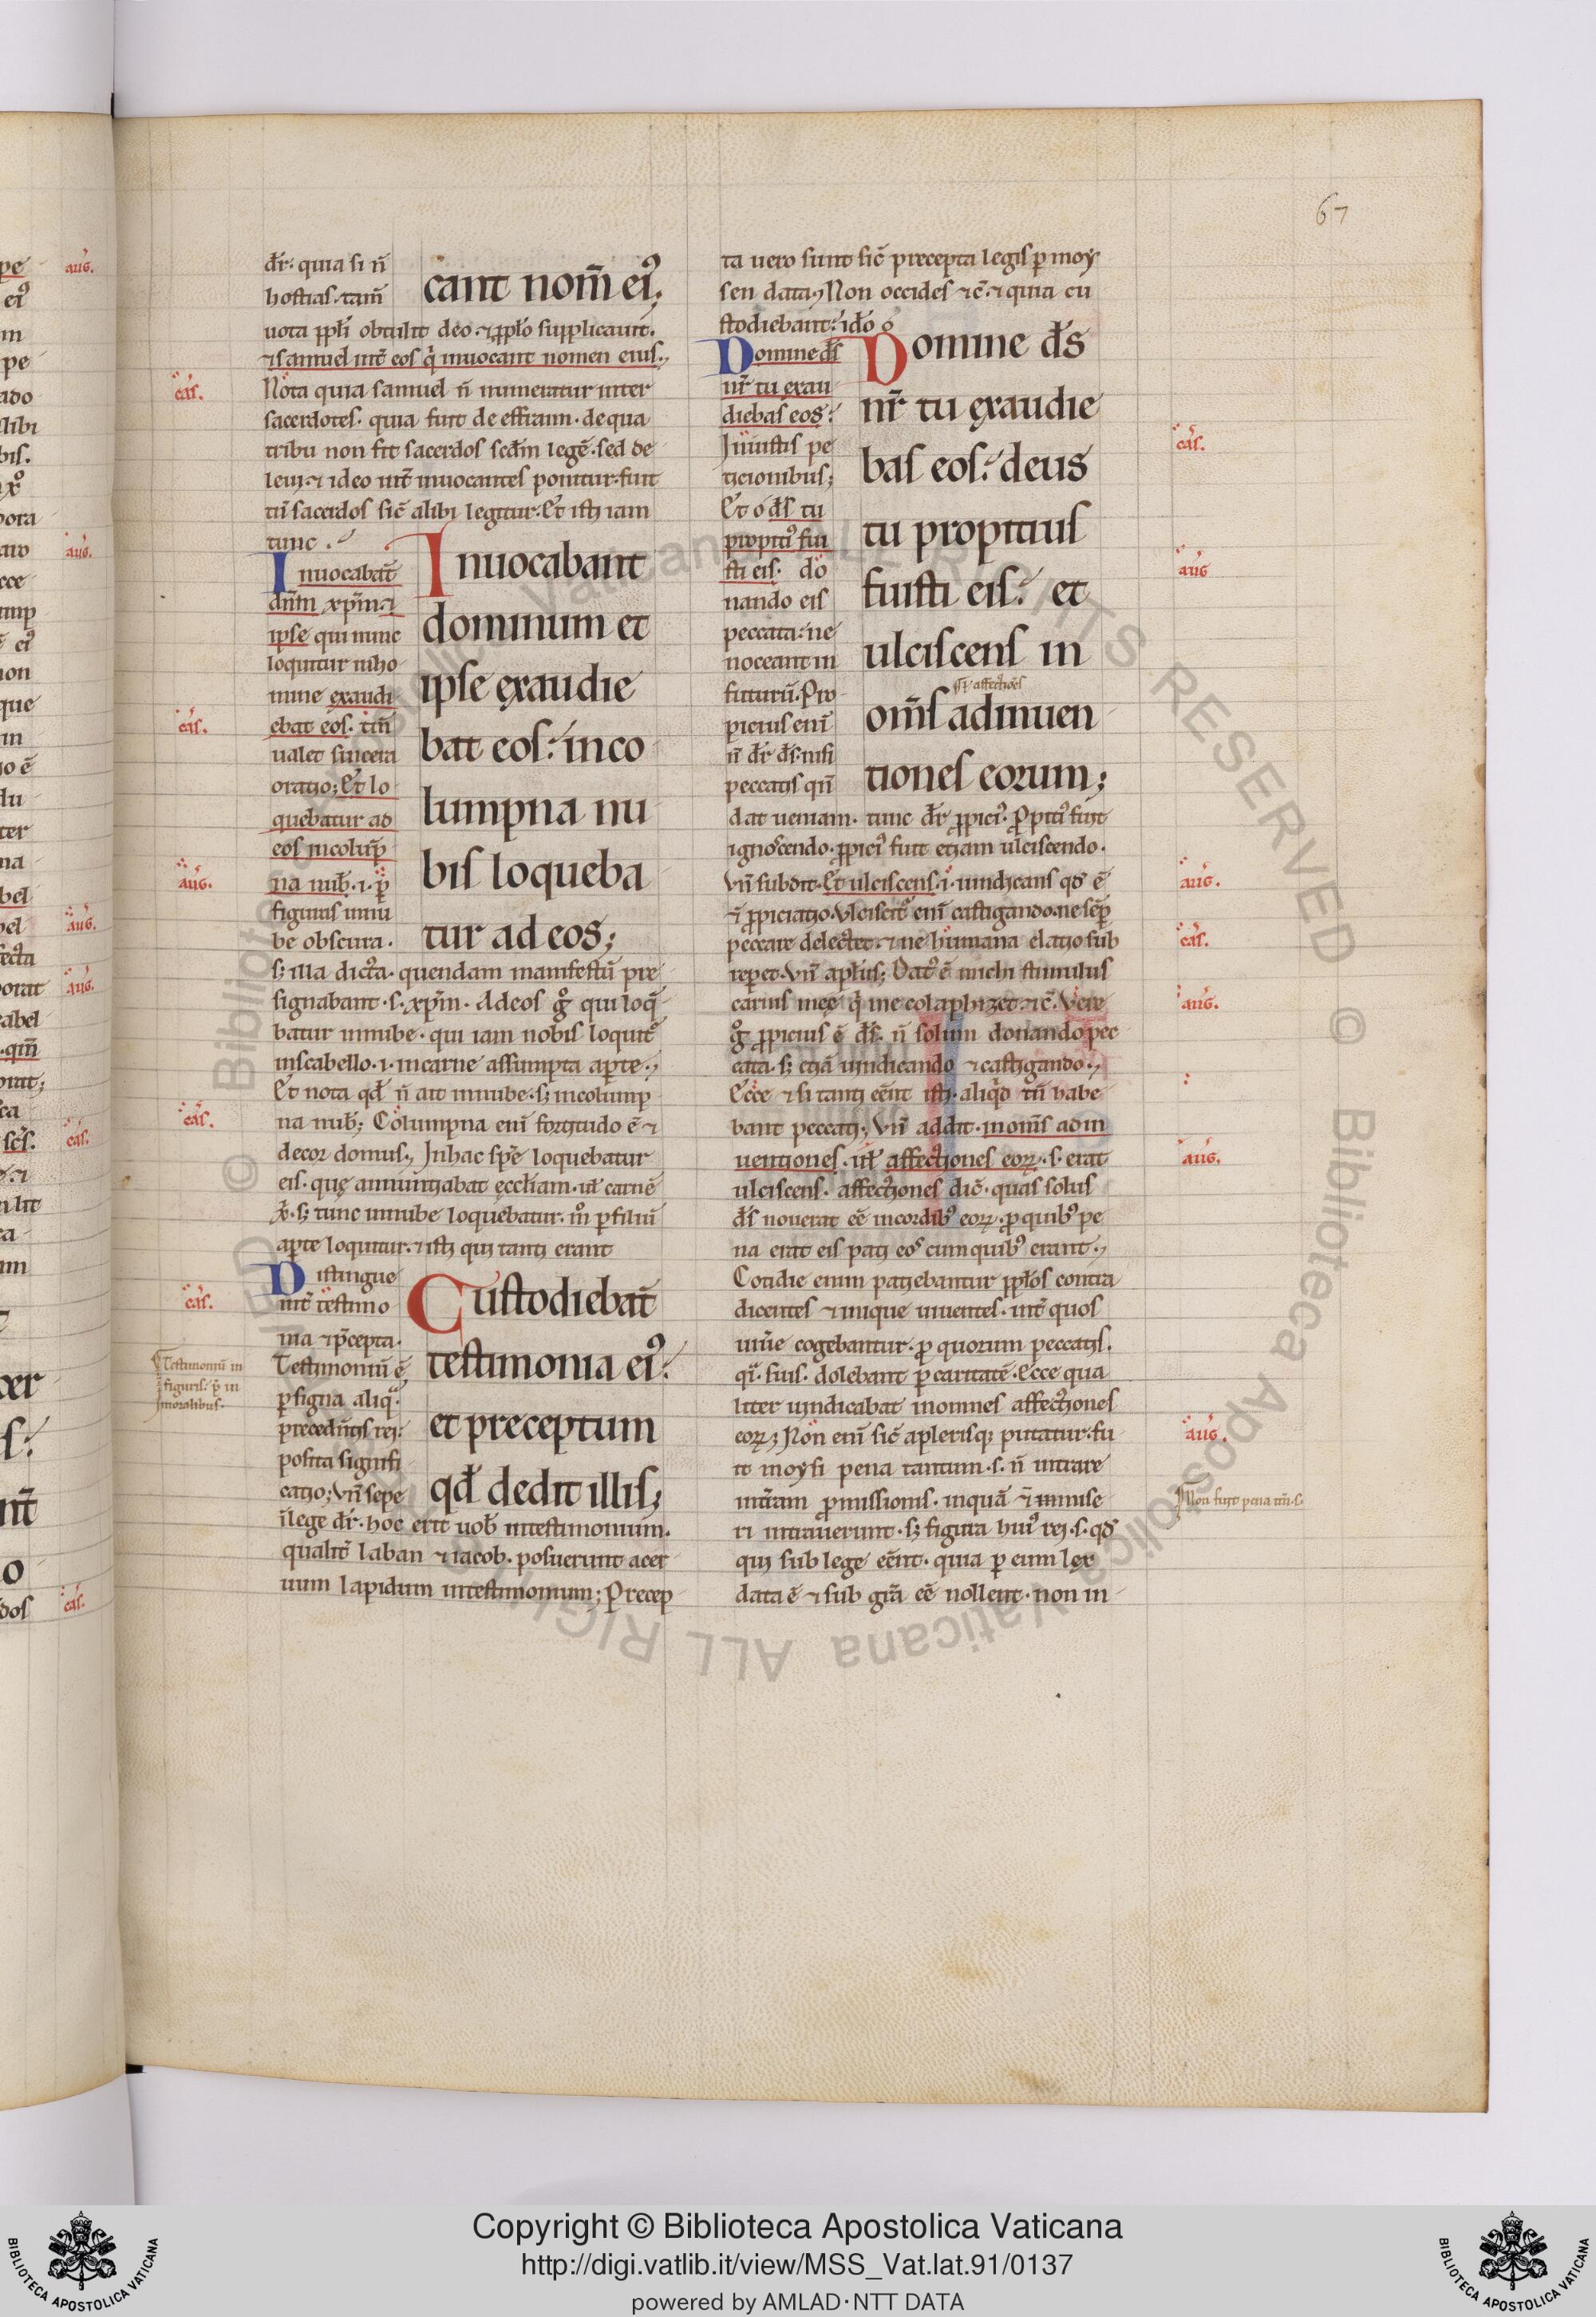 67
dr̄. quia si n̄
hostias. tam̄
uota ppl̄i obtulit deo. ⁊ ꝓ pplo supplicauit.
⁊ samuel int̄ eos q̇ inuocant nomen eius.
cant nom̄ ei᾽;
Nota quia samuel n̄ numeratur inter
sacerdotes. quia fuit de effraim. de qua
tribu non fit sacerdos scdm̄ legē. sed de
leui. ⁊ ideo int̄ inuocantes ponitur. fuit
tn̄ sacerdos sic̄ alibi legitur. Et isti iam
tunc.
Inuocabat̄
dn̄m xp̄m. ⁊
ipse qui nunc
loquitur in ho
mine exaudi
ebat eos. tm̄
ualet sincera
oratio; Et lo
quebatur ad
eos in colup̄
na nub̄. .i. ꝑ
figuras in nu
be obscura.
Inuocabant
dominum et
ipse exaudie
bat eos: in co
lumpna nu
bis loqueba
tur ad eos;
s; illa dicta. quendam manifestū pre
signabant. s. xp̄m. Ad eos gº qui loq̄
batur in nube. qui iam nobis loquit᾽
in scabello. .i. in carne assumpta aꝑte.
Et nota qd̄ n̄ ait in nube. s; in colump
na nub̄; Columpna eni̅ fortitudo ē ⁊
decor domus. In hac spē loquebatur
eis. quę annuntiabat ęccl̄iam. ul̄ carnē
x̄. s; tunc in nube loquebatur. mº ꝑ filiū
aꝑte loquitur. ⁊ isti qui tanti erant
Distingue
int̄ testimo
nia ⁊ p̄cepta.
Testimoniū ē
ꝑ signa aliq̄
precedentis rei:
posita signifi
catio; vn̄ sepe
Custodiebat̄
testimonia ei᾽:
et preceptum
qd̄ dedit illis;
i lege dr̄. hoc erit uob̄ in testimonium.
qualit̄ laban ⁊ iacob. posuerunt acer
uum lapidum in testimonium; Precep
Testimoniū in
figuris. p̄ in
moralibus.
ta uero sunt sic̄ precepta legis ꝑ moy
sen data. Non occides ⁊ c̄. ⁊ quia cu
stodiebant: idō
Domine ds̄
nr̄ tu exau
diebas eos:
In iustis pe
ticionibus;
Et o ds̄ tu
propiti᾽ fui
sti eis. do
nando eis
peccata: ne
noceant in
futurū. Pro
picius eni̅
n̄ dr̄ ds̄: nisi
peccatis qn̄
Domine ds̄
nr̄ tu exaudie
bas eos: deus
tu propitius
fuisti eis: et
ulciscens in
ł affectiōes
om̄s adinuen
tiones eorum;
dat ueniam. tunc dr̄ ꝓpici᾽. Ꝓpiti᾽ fuit
ignoscendo. ꝓpici᾽ fuit etiam ulciscendo.
vn̄ subdit. Et ulciscens. .i. uindicans qd̄ ē
⁊ ꝓpiciatio. Vlciscit᾽ eni̅ castigando. ne seꝑ
peccare delectet. ⁊ ne humana elatio sub
repet. Vn̄ apl̄us; Dat᾽ ē michi stimulus
carnis meę q̇ me colaphizet. ⁊ c̄. Vere
gº ꝓpicius ē ds̄. n̄ solum donando pec
cata. s; etiā uindicando ⁊ castigando.
Ecce ⁊ si tanti eēnt isti. aliqd̄ tn̄ habe
bant peccati; Vn̄ addit. in om̄s adin
uentiones. ul̄ affectiones eoꝝ. s. erat
ulciscens. affectiones dic̄. quas solus
ds̄ nouerat eē in cordib᾽ eoꝝ. ꝓ quib᾽ pe
na erat eis pati eos cum quib᾽ erant.
Cotidie enim patiebantur ppl̄os contra
dicentes ⁊ inique uiuentes. int̄ quos
uiu̅e cogebantur. ꝓ quorum peccatis.
q̄i. suis. dolebant ꝑ caritatē. Ecce qua
liter uindicabat in omnes affectiones
eoꝝ; Non eni̅ sic̄ a plerisq; putatur. fu
it moysi pena tantum. s. n̄ intrare
in tr̄am ꝓmissionis. in quā ⁊ i̅ mise
ri intrauerunt. s; figura hui᾽ rei. s. qd̄
qui sub lege eēnt. quia ꝑ eum lex
data ē ⁊ sub gr̄a eē nollent. non in
Non fuit pena tm̄. s.
cās.
cās.
aug.
cās.
cās.
cās.
aug
aug.
cās.
aug.
aug.
aug.
Copyright © Biblioteca Apostolica Vaticana
http://digi.vatlib.it/view/MSS_Vat.lat.91/0137
powered by AMLAD·NTT DATA